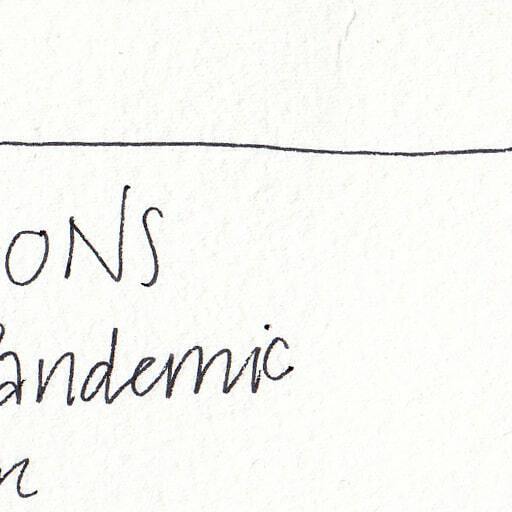 ONS
andemic
n